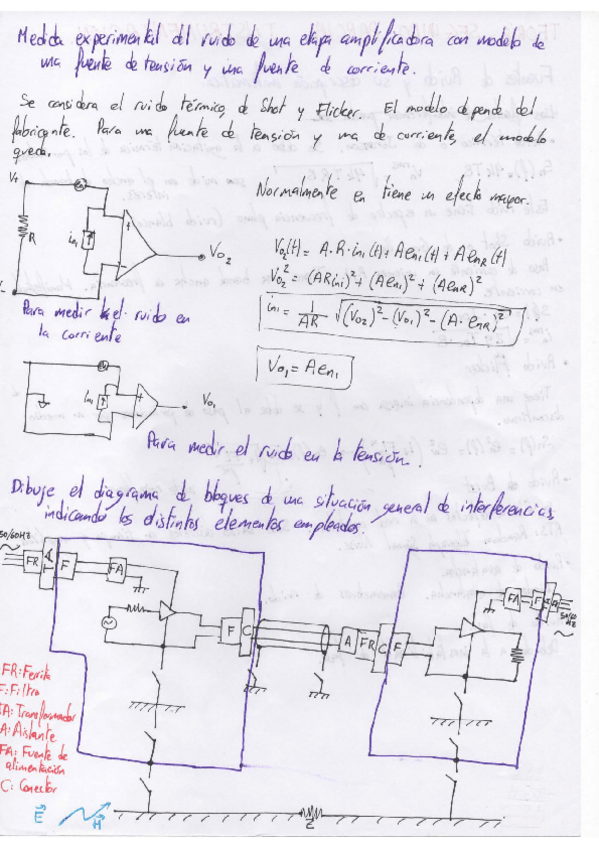 Medida experimental del ruido de una etapa amplificadora con modelo de
una fuente de tensión y una fuente de corriente.
Se considera el ruido térmico, de Shot y Flicker. El modelo depende del
fabricante. Para una fuente de tensión y una de corriente, el modelo
queda.
Normalmente en tiene un efecto mayor.
R
in₁
+
-
Vo₂
Vo₂(t) = A·R·in₁(t) + Aen₁(t) + AenR(t)
Vo₂² = (ARin₁)² + (Aen₁)² + (AenR)²
in₁ = 1/AR √((Vo₂)² - (Vo₁)² - (A·enR)²)
Vo₁ = Aen₁
Para medir el ruido en
la corriente
in₁
+
-
Vo₁
Para medir el ruido en la tensión.
Dibuje el diagrama de bloques de una situación general de interferencias,
indicando los distintos elementos empleados.
50/60Hz
FR
F
FA
F
C
A
FR
C
F
FA
F
FR: Ferrita
F: Filtro
TA: Transformador
A: Aislante
FA: Fuente de
alimentación
C: Conector
E
H
Z